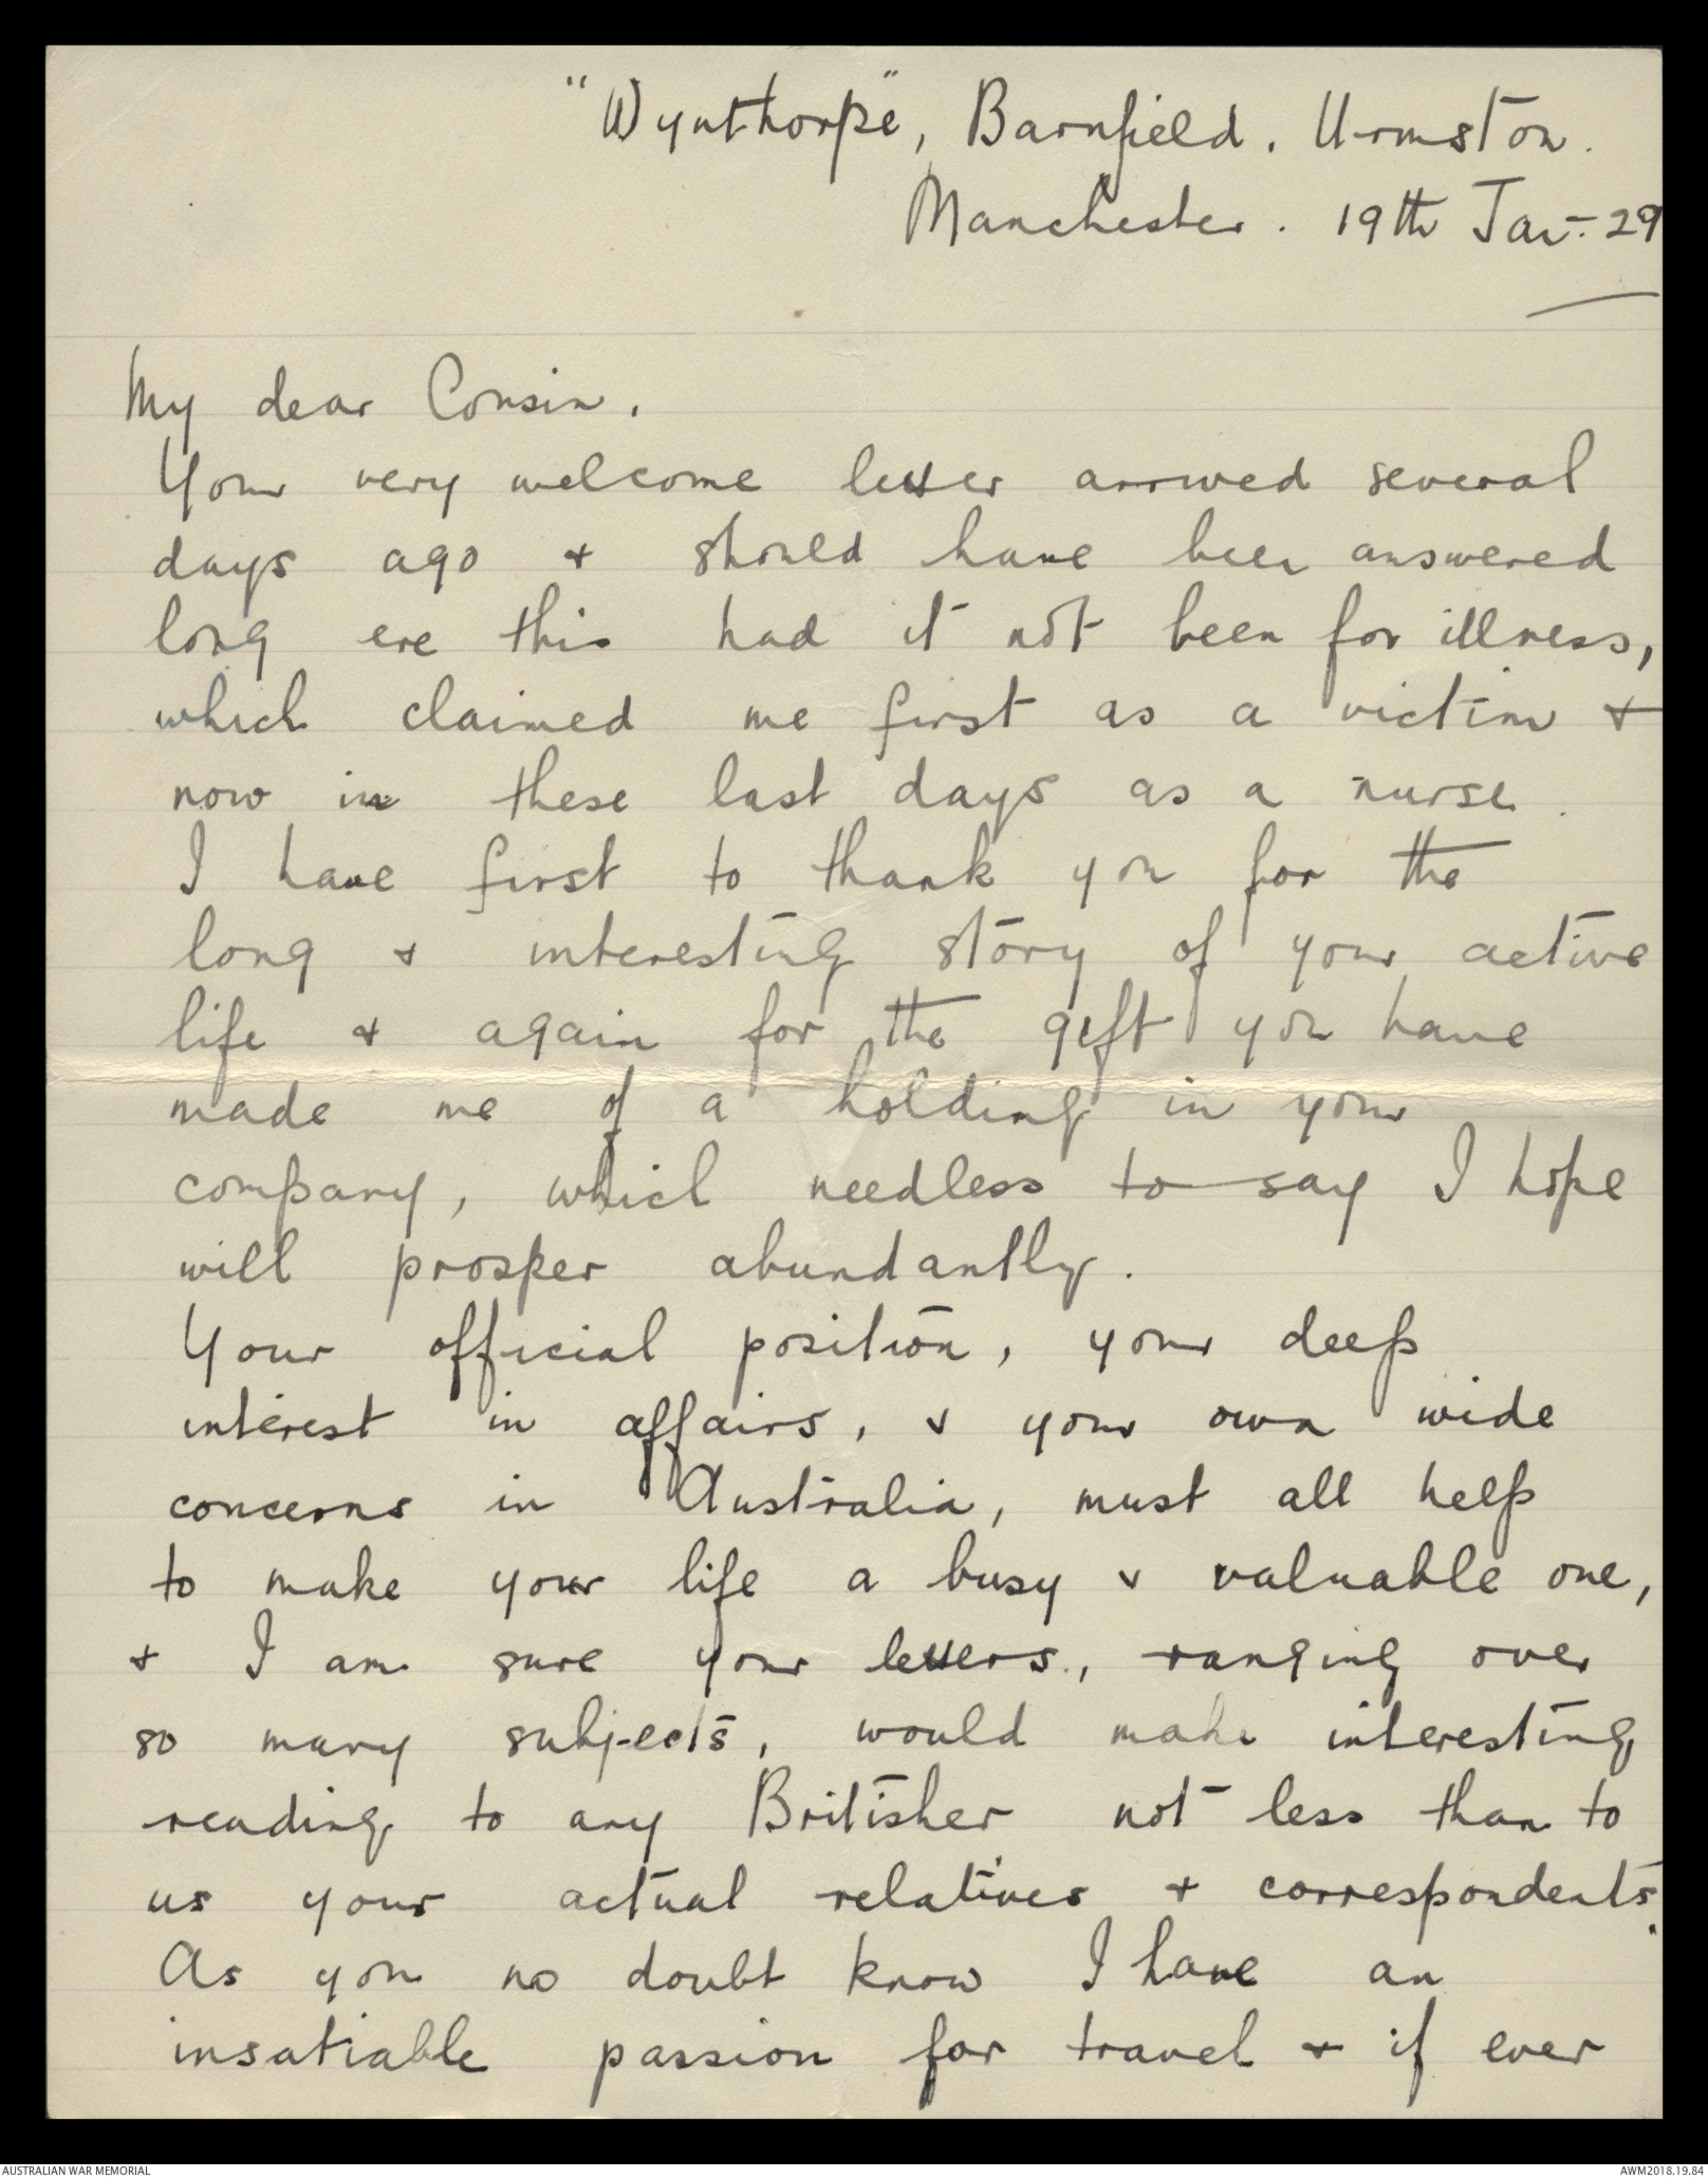 "Wynthorpe", Barnfield. Urmston.
Manchester. 19th Jan. 29
My dear Cousin.
Your very welcome letter arrived several
days ago & should have been answered
long ere this had it not been for illness,
which claimed me first as a victim &
now in these last days as a nurse.
I have first to thank you for the
long & interesting story of your active
life & again for the gift you have
made me of a holding in your
company, which needless to say I hope
will prosper abundantly.
Your official position, your deep
interest in affairs, & your own wide
concerns in Australia, must all help
to make your life a busy & valuable one,
& I am sure your letters, ranging over
so many subjects, would make interesting
reading to any Britisher not less than to
us your actual relatives & correspondents.
As you no doubt know I have an
insatiable passion for travel & if ever
AUSTRALIAN WAR MEMORIAL
AWM2018.19.84